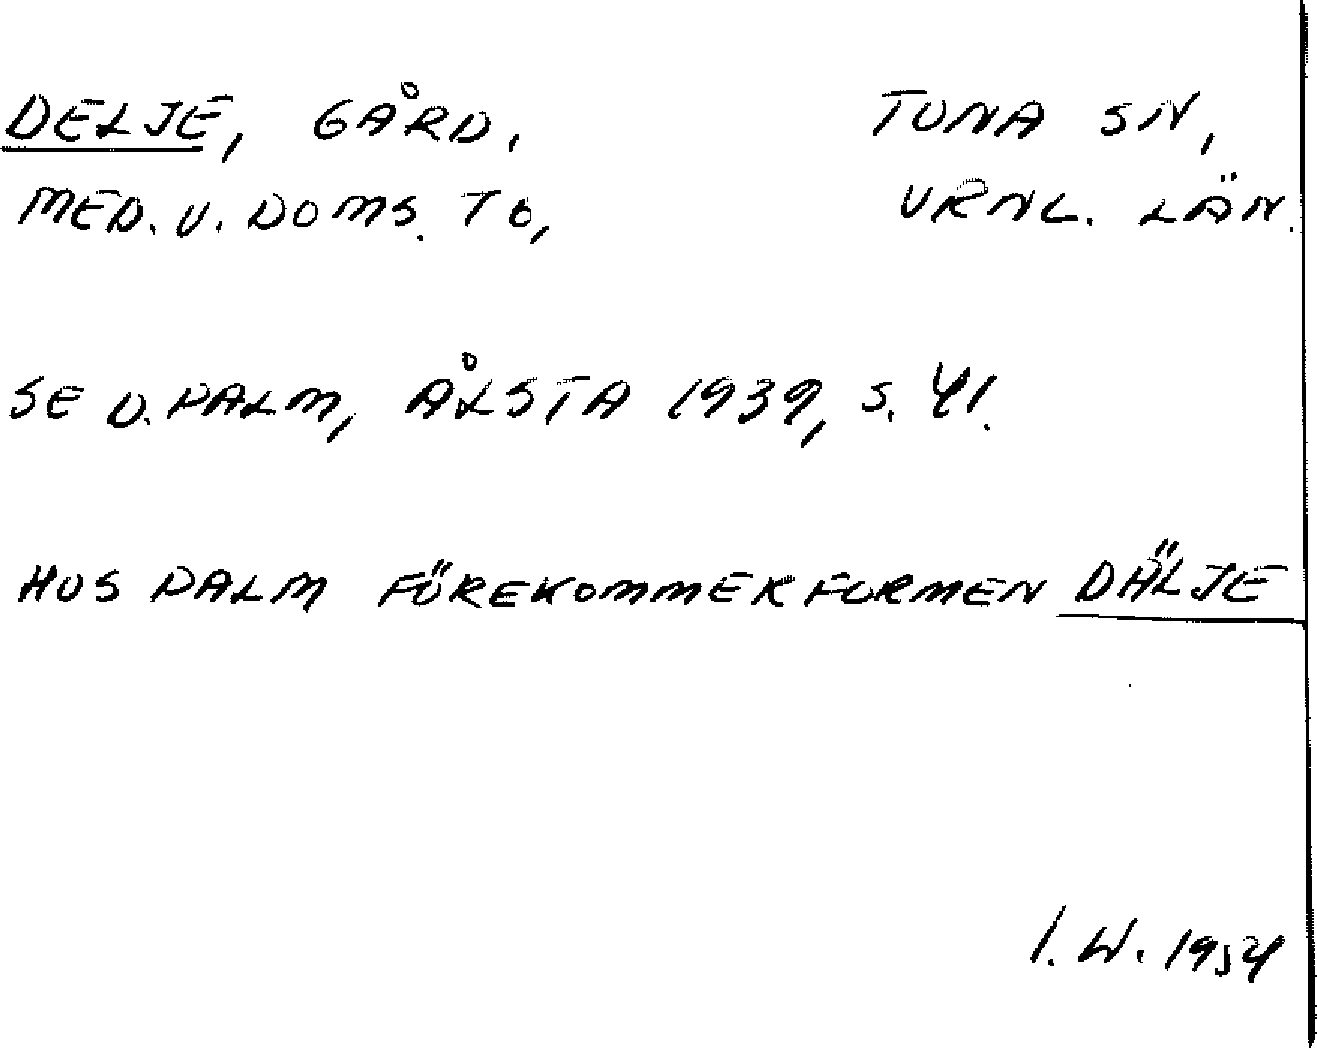 DELJE, GÅRD. TUNA SN,
MED. V. DOMS. TO, VRNL. LÄN.
SE D. PALM, ÅLSTA 1939, S. 41.
HUS PALM FÖREKOMMER FORMEN DÄLJE
I. W. 1954